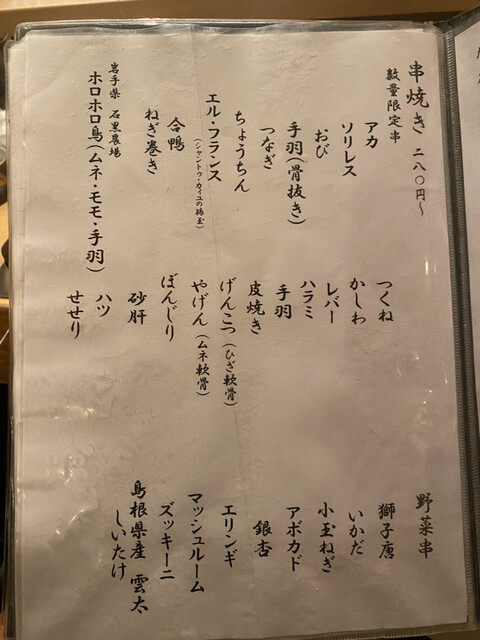 串焼き 二八〇円〜
数量限定串
アカ
ソリレス
おび
手羽(骨抜き)
つなぎ
ちょうちん
エル・フランス
(シャントゥ・カイユの鶉玉)
合鴨
ねぎ巻き
岩手県 石黒農場
ホロホロ鳥(ムネ・モモ・手羽)
つくね
かしわ
レバー
ハラミ
手羽
皮焼き
げんこつ(ひざ軟骨)
やげん(ムネ軟骨)
ぼんじり
砂肝
ハツ
せせり
野菜串
獅子唐
いかだ
小玉ねぎ
アボカド
銀杏
エリンギ
マッシュルーム
ズッキーニ
島根県産 雲太
しいたけ